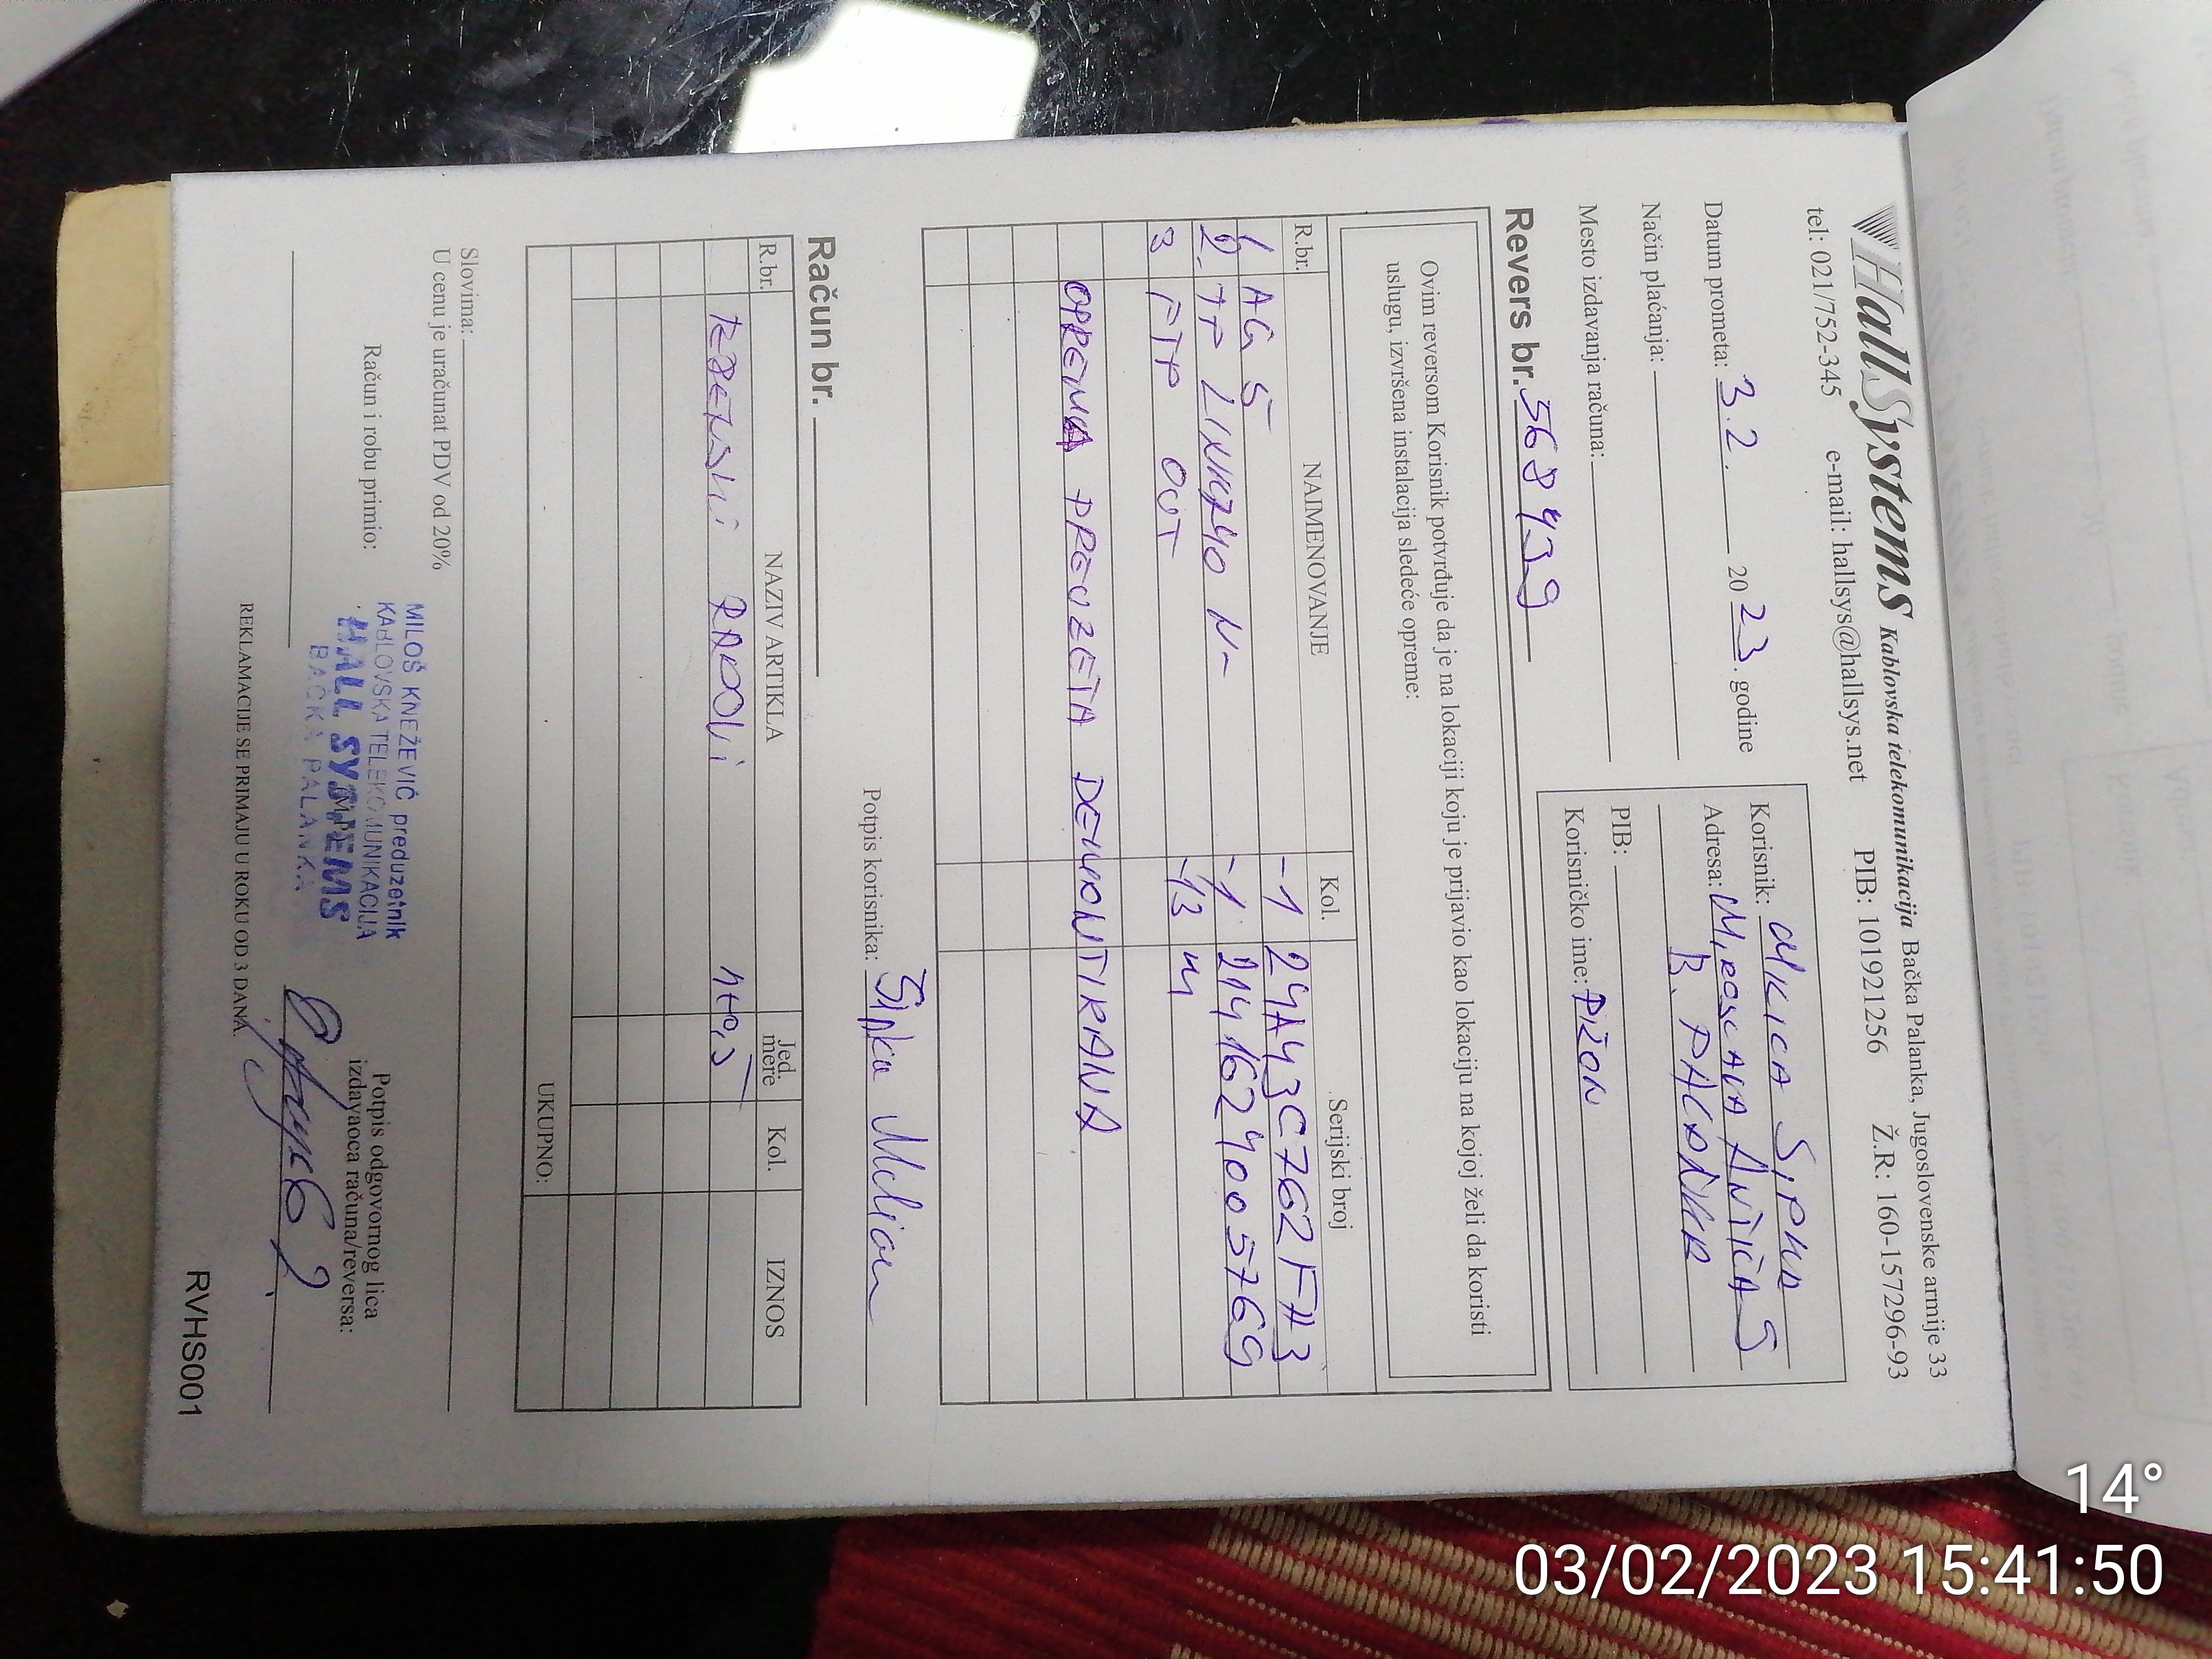 HallSystems Kablovska telekomunikacija Bačka Palanka, Jugoslovenske armije 33
tel: 021/752-345 e-mail: hallsys@hallsys.net PIB: 101921256 Ž.R: 160-157296-93
Datum prometa: 3.2. 2023. godine
Način plaćanja:
Mesto izdavanja računa:
Korisnik: MILICA SIPKA
Adresa: MIROSLAVA ANTIĆA 5
B. PALANKA
PIB:
Korisničko ime: PIŽON
Revers br. 568439
Ovim reversom Korisnik potvrđuje da je na lokaciji koju je prijavio kao lokaciju na kojoj želi da koristi
uslugu, izvršena instalacija sledeće opreme:
R.br. NAIMENOVANJE Kol. Serijski broj
1 AG 5 -1 24A43C762F73
2. TP LINK740 N- -1 2141624005769
3 FTP OUT -13 m
OPREMA PREUZETA DEMONTIRANA
Potpis korisnika: Šipka
Račun br.
R.br. NAZIV ARTIKLA Jed. mere Kol. IZNOS
RADOVI
UKUPNO:
Slovima:
U cenu je uračunat PDV od 20%
Račun i robu primio:
MILOŠ KNEŽEVIĆ preduzetnik
KABLOVSKA TELEKOMUNIKACIJA
HALL SYSTEMS
BAČKA PALANKA
M.P.
Potpis odgovornog lica
izdavaoca računa/reversa:
REKLAMACIJE SE PRIMAJU U ROKU OD 3 DANA.
RVHS001
14°
03/02/2023 15:41:50